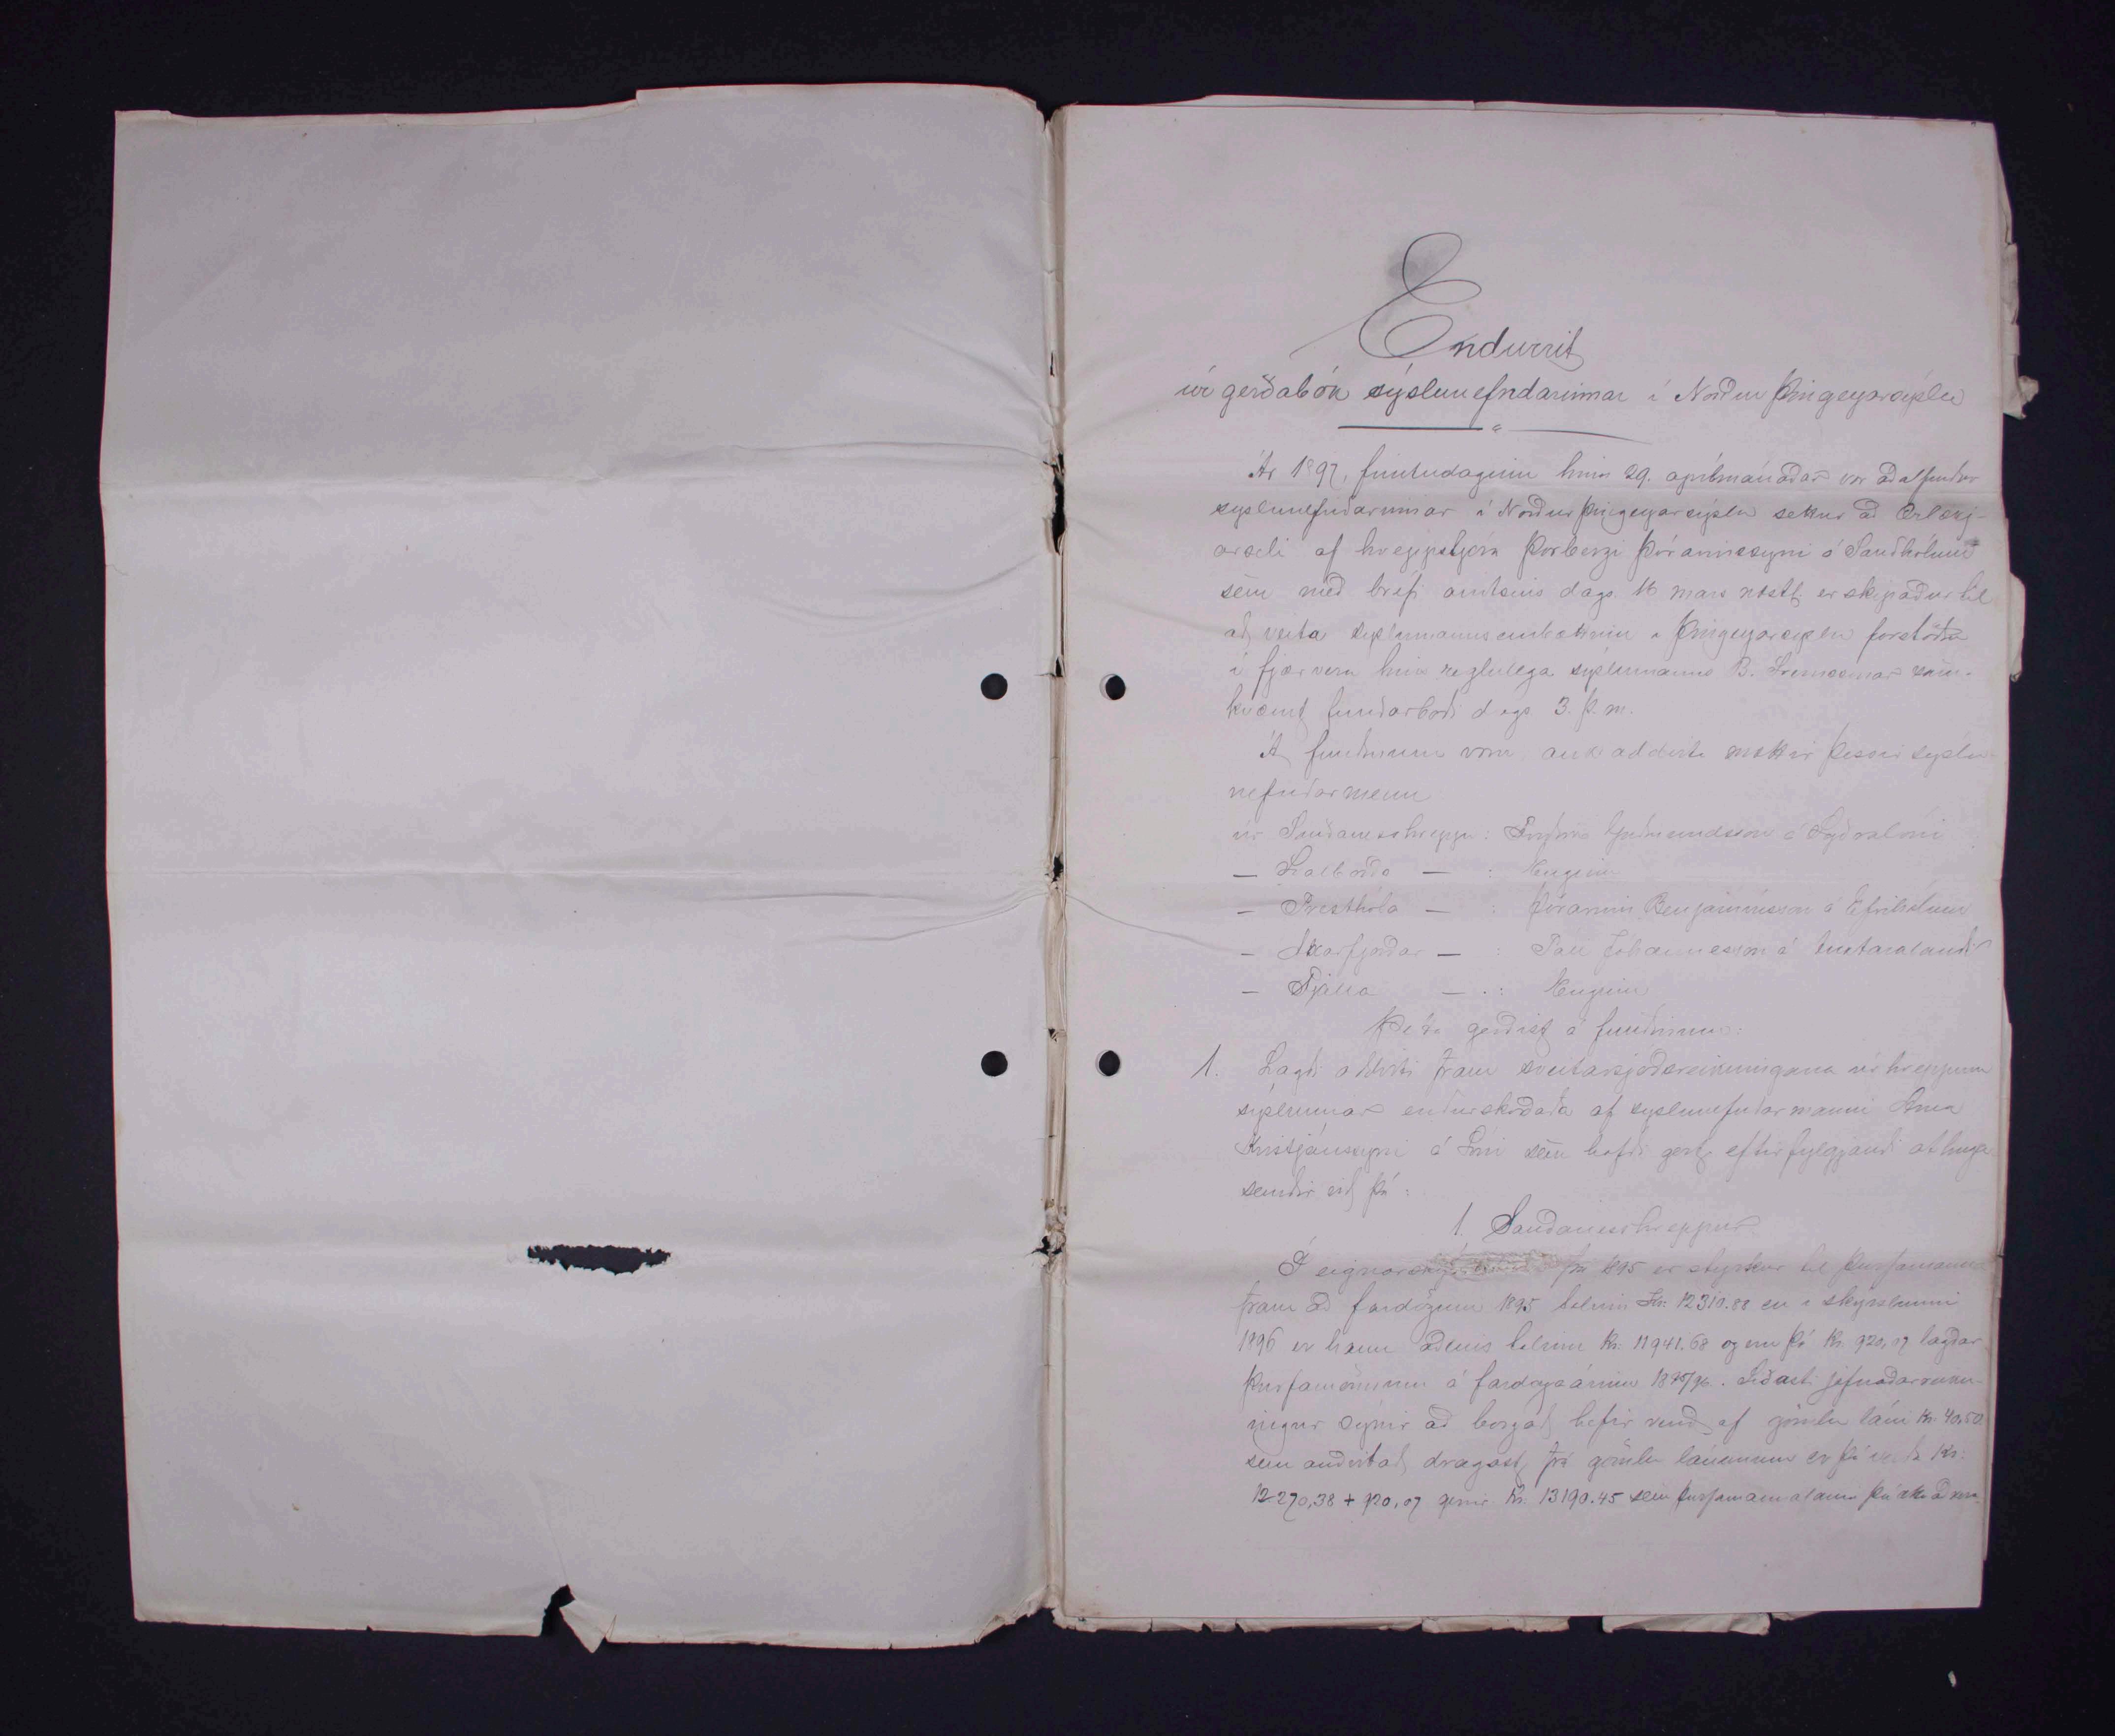 Endurrit
úr gerðabók sýslunefndarinnar í Norður Þingeyarsýslu
Ár 1897, fimtudaginn hinn 29. aprílmánaðar var aðalfundur
sýslunefndarinnar í Norður Þingeyarsýslu settur að Ærlækj-
arseli af hreppstjóra Þorbergi Þórarinssyni á Sandhólum
sem með bréfi amtsins dags 16 mars næstl er skipaður til
að veita sýslumannsembættinu í Þingeyarsýslu forstöðu
í fjærveru hins reglulega sýslumanns B. Sveinssonar sam-
kvæmt fundarboði dags 3. þ. m.
Á fundinum voru, auk oddvita mættir þessir sýslu
nefndarmenn
úr Sauðaneshreppi: Guðmundsson á Syðralóni
— Svalbarðs — : Enginn
— Presthóla — : Þórarinn Benjamínsson á Efrihólum
— Axarfjarðar — : Páll Jóhannesson á Austaralandi
— Fjalla — : Enginn
Þetta gerðist á fundinum:
1. Lagði oddviti fram sveitarsjóðsreikningana úr hreppum
sýslunnar endurskoðaða af sýslunefndarmanni Árna
Kristjánssyni á Lóni sem hafði gert eftirfylgjandi athuga
semdir við þá:
1. Sauðaneshreppur
Í frá 1895 er styrkur til þurfamanna
fram að fardögum 1895 talinn Kr: 12310.88 en í skýrslunni
1896 er hann aðeins talinn Kr: 11941.68 og eru þó Kr. 920,07 lagðar
þurfamönnum á fardagaárinu 1895/96. Síðasti jafnaðarreikn-
ingur sýnir að borgað hefir verið af gömlu láni Kr. 40,50
sem auðvitað dragast frá gömlu lánunum er þá Kr:
12270,38 + 920,07 gerir Kr. 13190.45 sem